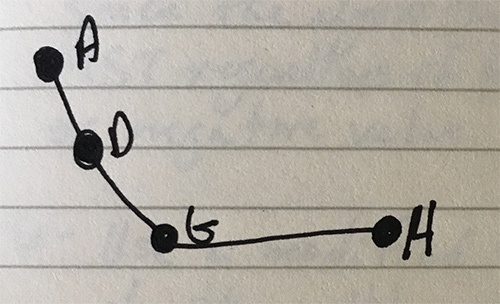 A
D
G
H